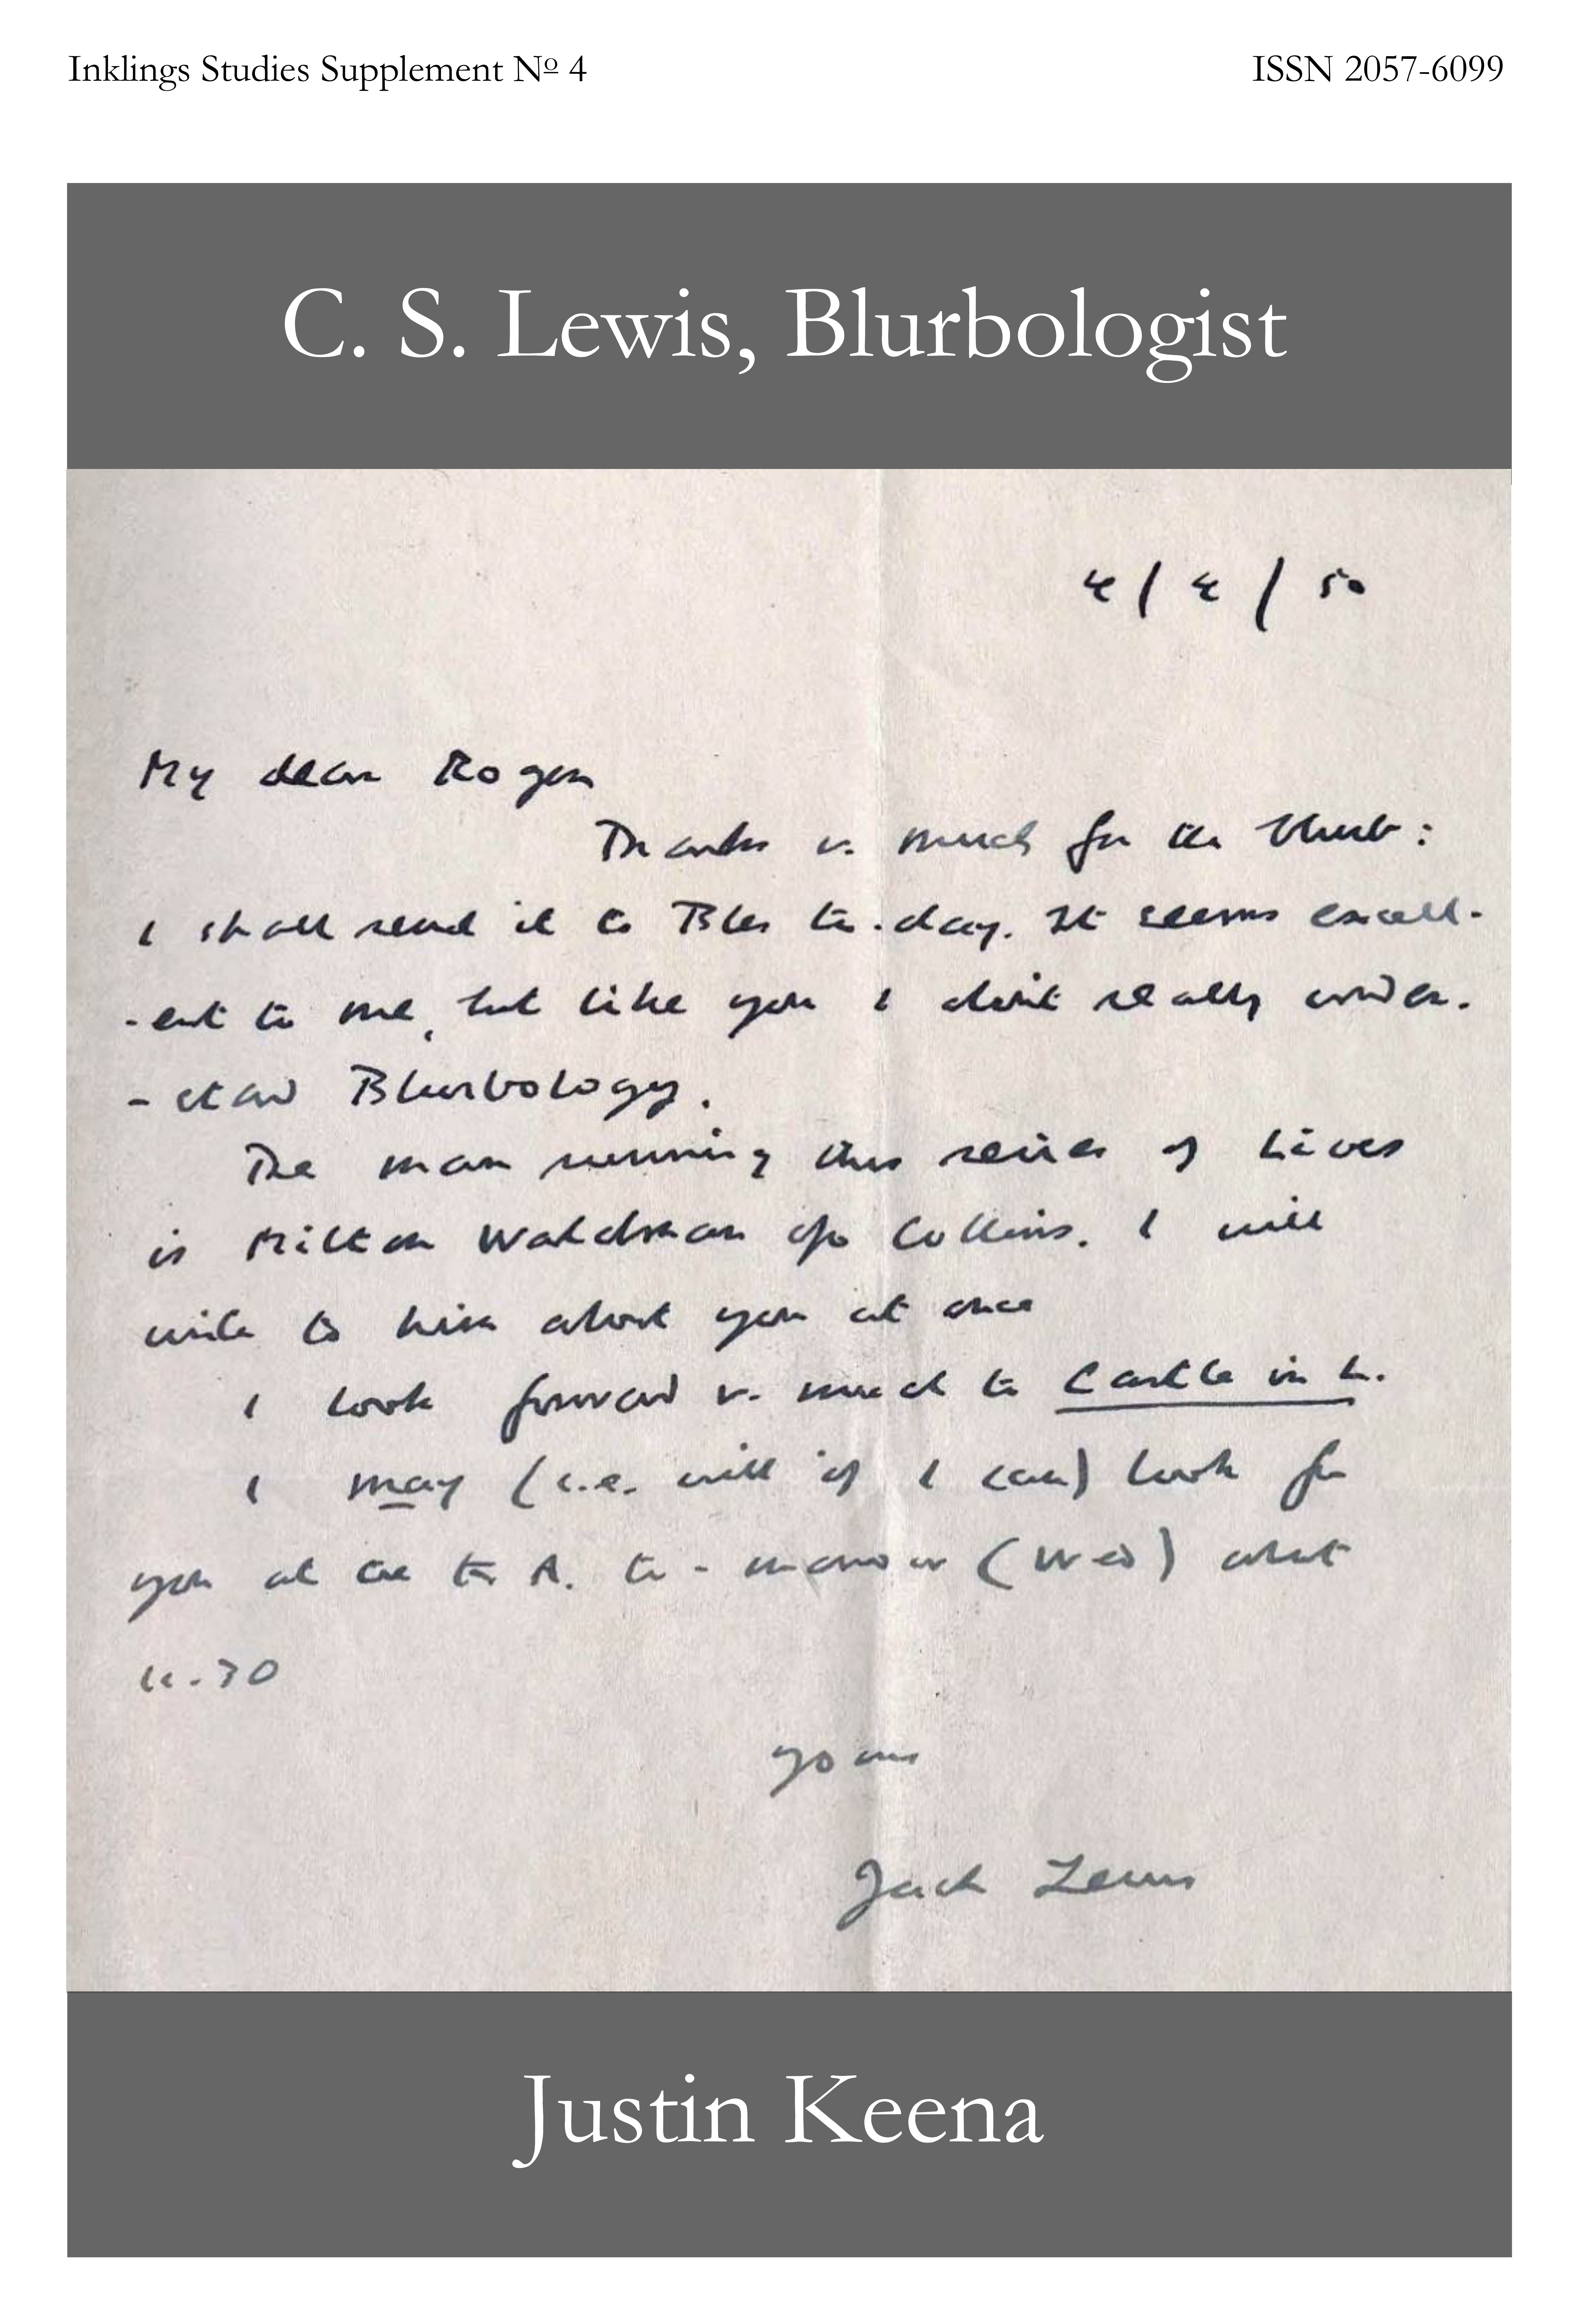 Inklings Studies Supplement Nº 4
ISSN 2057-6099
C. S. Lewis, Blurbologist
4/4/50
My dear Roger
Thanks v. much for the blurb:
I shall send it to Bles to-day. It seems excell-
-ent to me, but like you I don't really under-
-stand Blurbology.
The man running this series of Lives
is Milton Waldman c/o Collins. I will
write to him about you at once
I look forward v. much to Castle in L.
I may (i.e. will if I can) look for
you at the K.A. to-morrow (Wed) about
11.30
Yours
Jack Lewis
Justin Keena